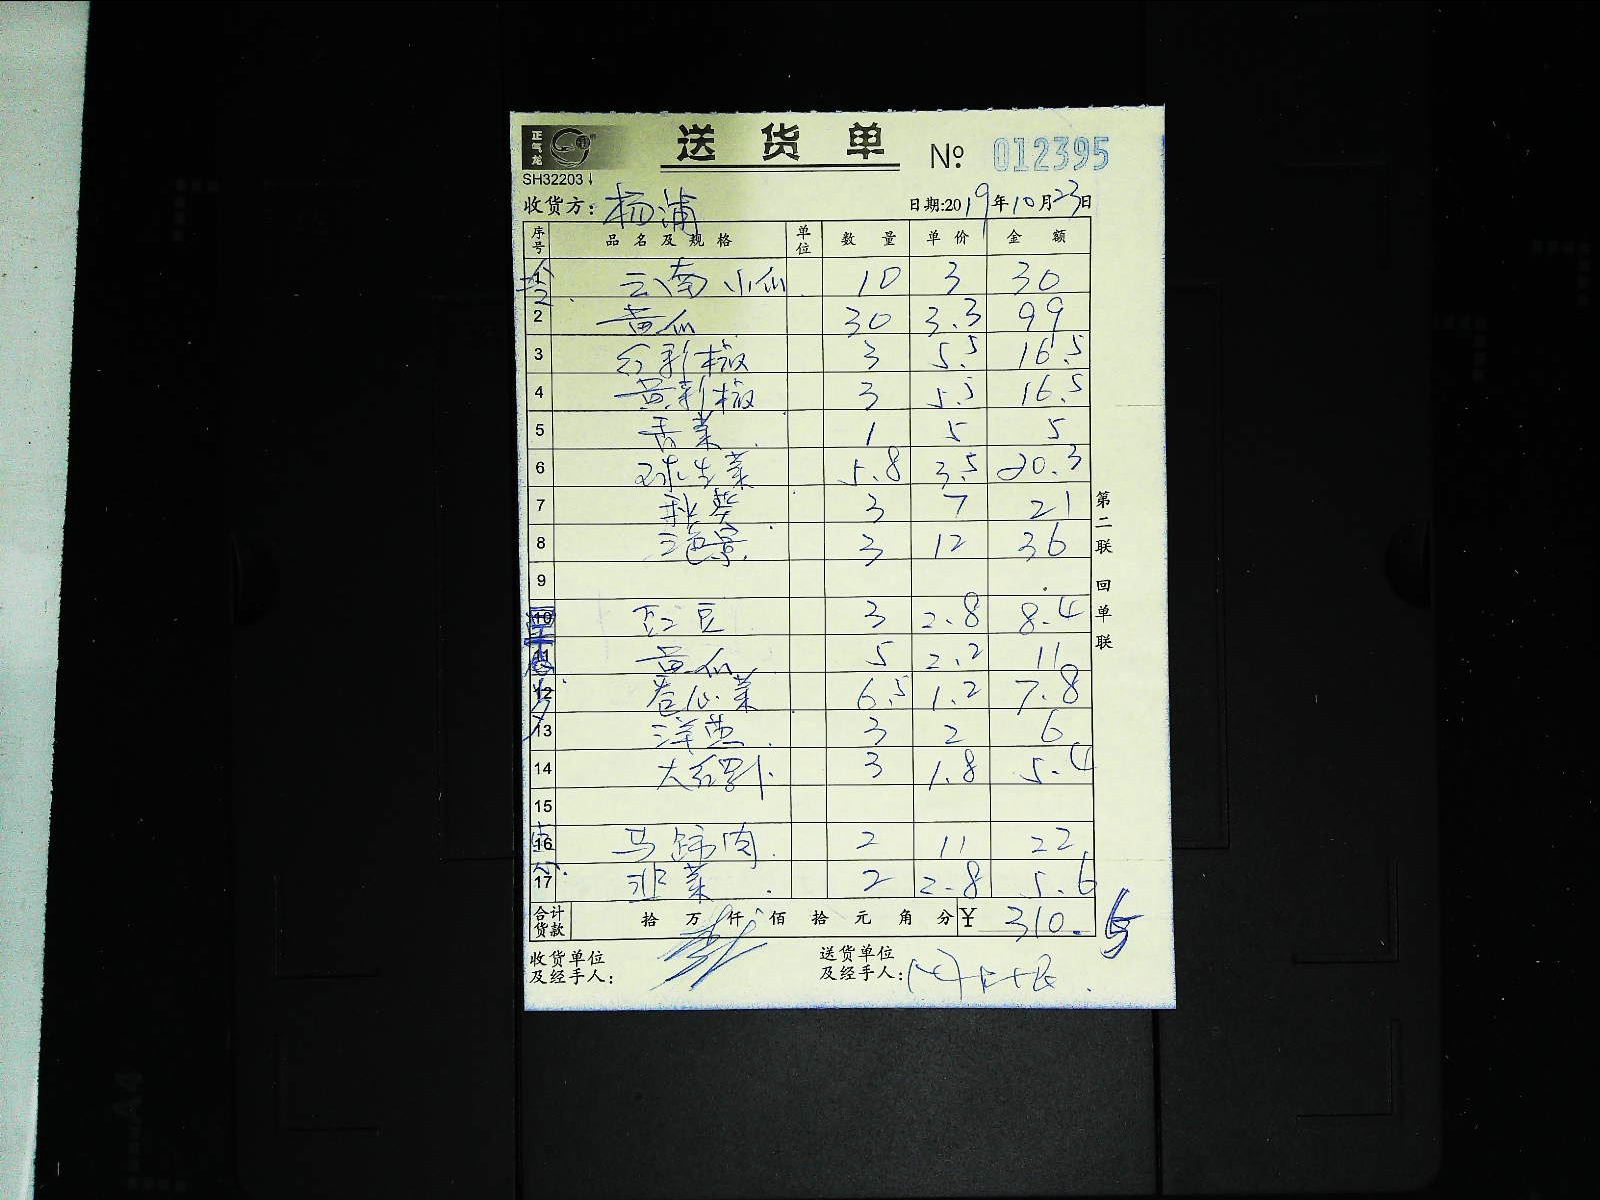 正气龙
送货单 № 012395
SH32203
收货方: 杨浦 日期:2019年10月23日
序号 品名及规格 单位 数量 单价 金额
1 云南小瓜 10 3 30
2 黄瓜 30 3.3 99
3 红彩椒 3 5.5 16.5
4 黄彩椒 3 5.5 16.5
5 香菜 1 5 5
6 球生菜 5.8 3.5 20.3
7 秋葵 3 7 21
8 三色堇 3 12 36
9
10 豇豆 3 2.8 8.4
11 黄瓜 5 2.2 11
12 卷心菜 6.5 1.2 7.8
13 洋葱 3 2 6
14 大红萝卜 3 1.8 5.4
15
16 马蹄肉 2 11 22
17 韭菜 2 2.8 5.6
合计货款 拾 万 仟 佰 拾 元 角 分 ¥ 310.5
收货单位及经手人:
送货单位及经手人:
第二联 回单联